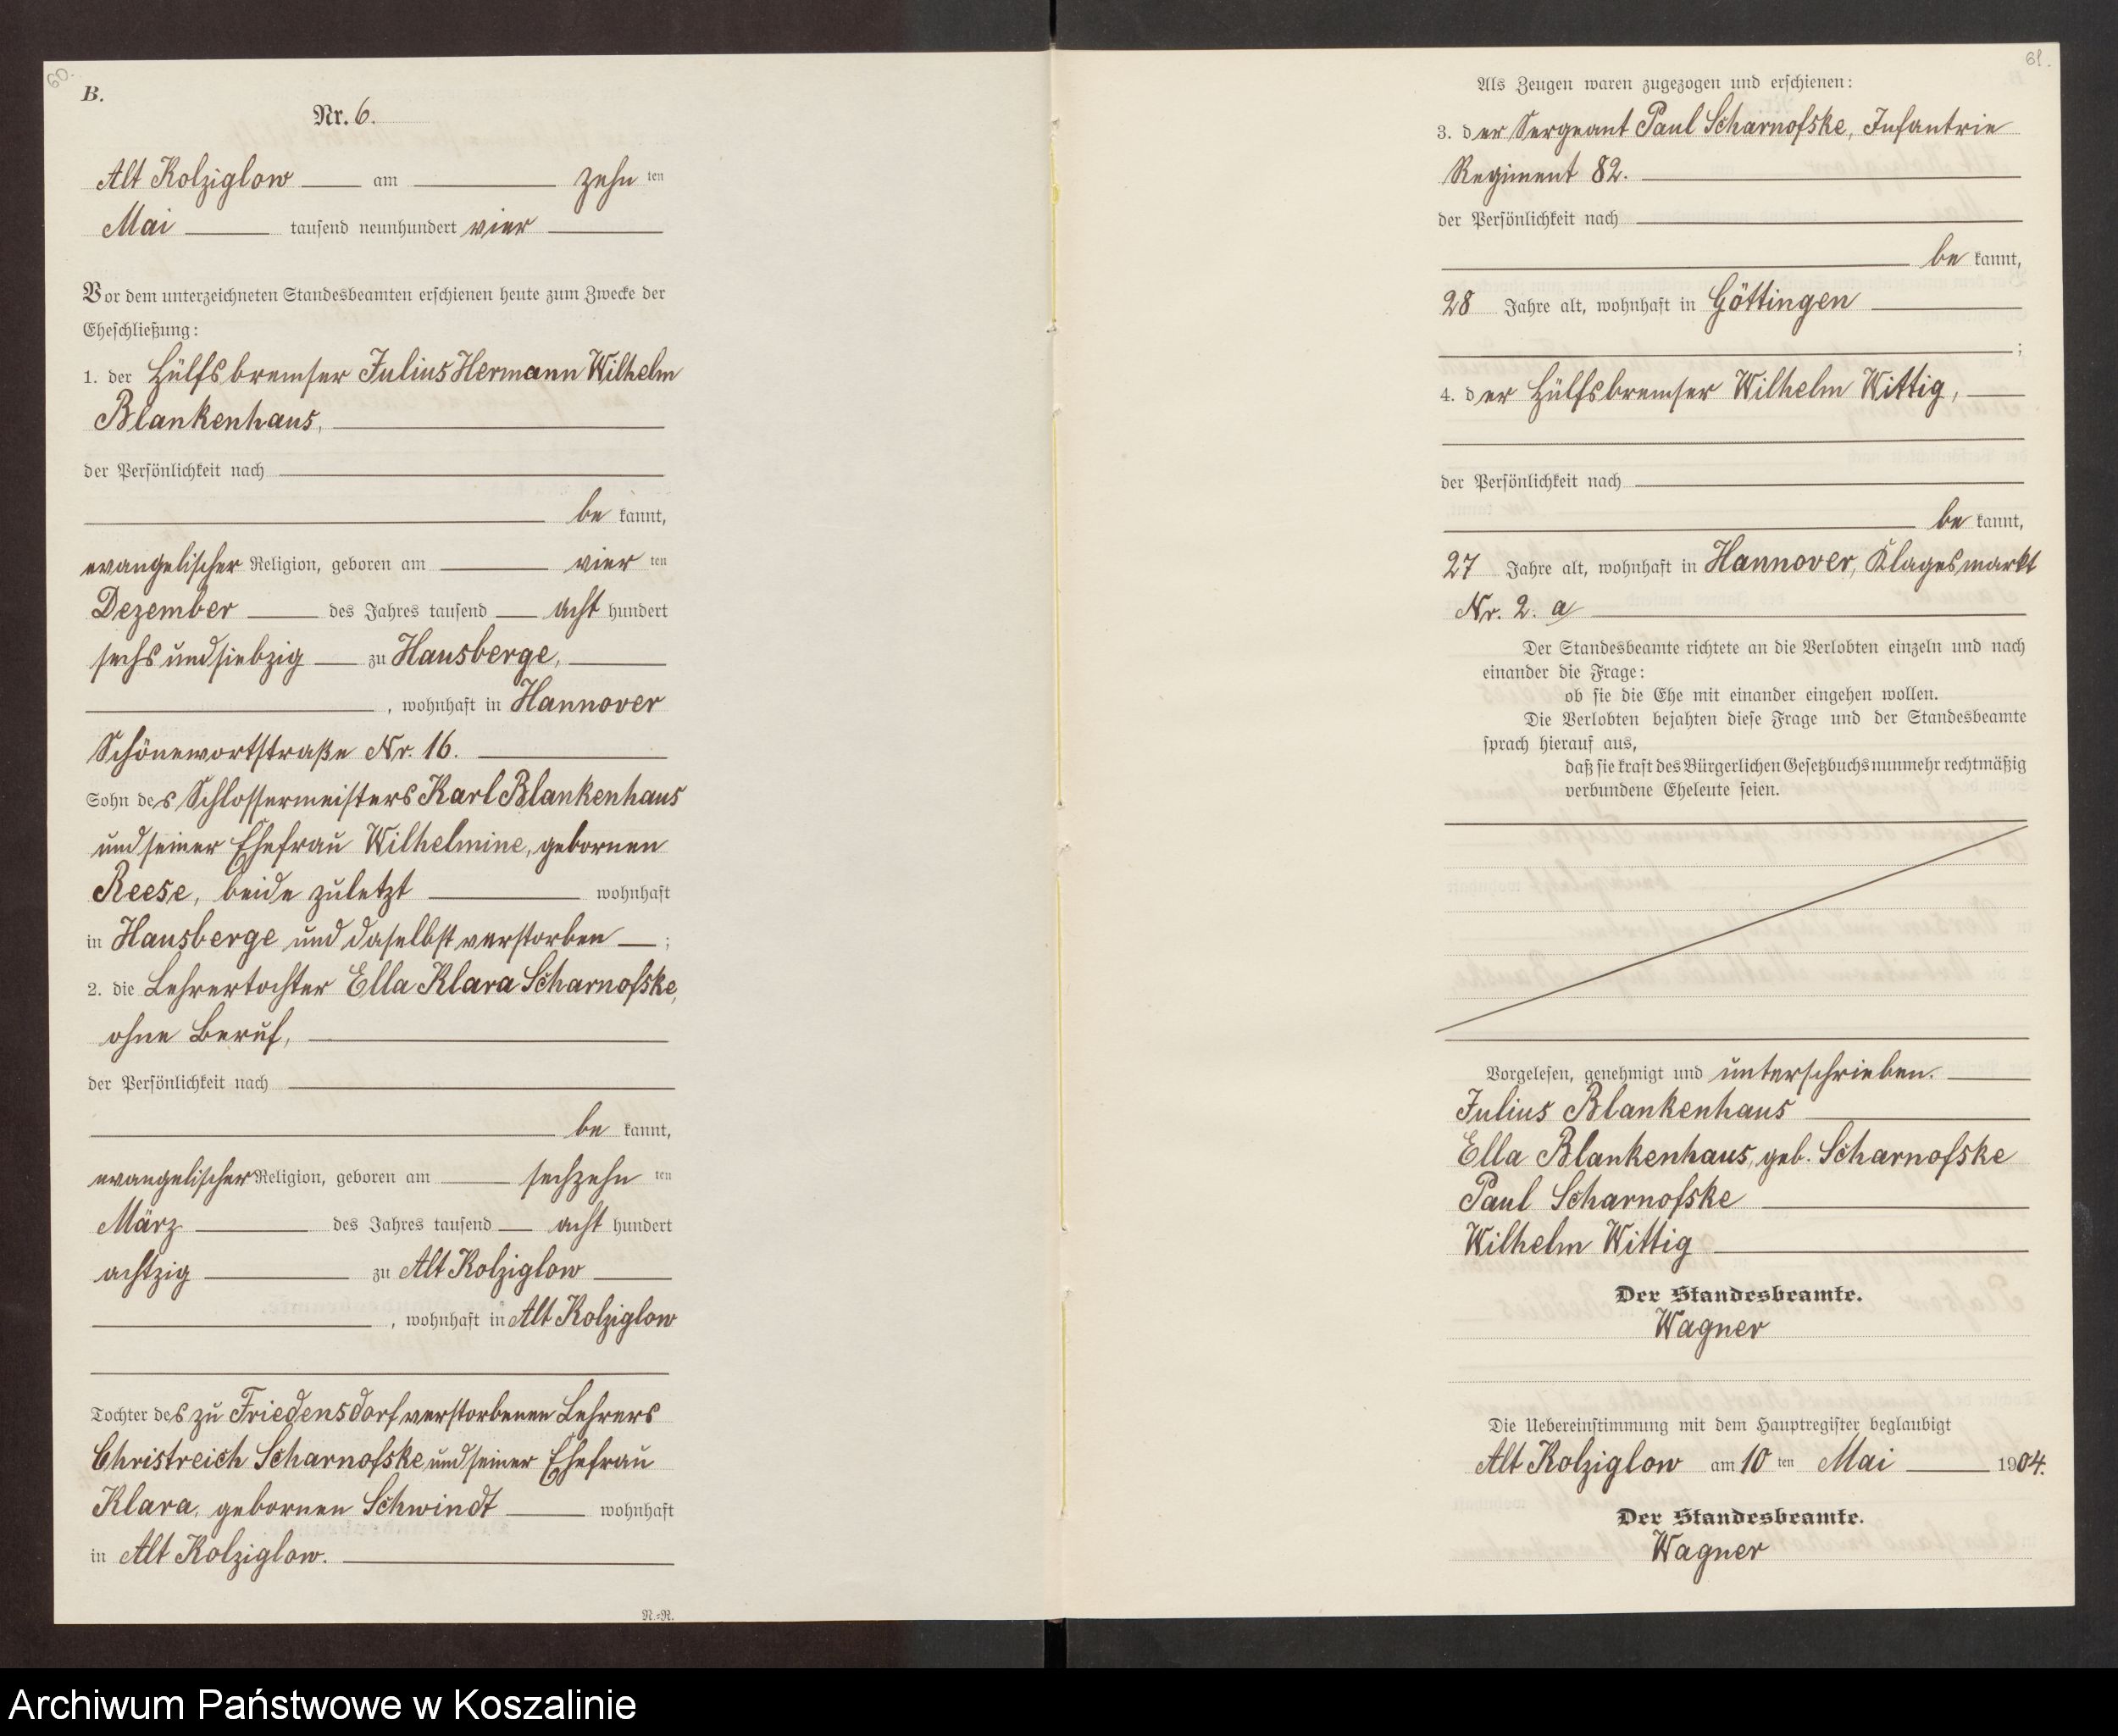 60.
B.
Nr. 6.
Alt Kolziglow am zehn ten
Mai tausend neunhundert vier
Vor dem unterzeichneten Standesbeamten erschienen heute zum Zwecke der
Eheschließung:
1. der Hülfsbremser Julius Hermann Wilhelm
Blankenhaus,
der Persönlichkeit nach
be kannt,
evangelischer Religion, geboren am vier ten
Dezember des Jahres tausend acht hundert
sechs und siebzig zu Hausberge,
, wohnhaft in Hannover
Schönewortstraße Nr. 16.
Sohn des Schlossermeisters Karl Blankenhaus
und seiner Ehefrau Wilhelmine, gebornen
Reese, beide zuletzt wohnhaft
in Hausberge und daselbst verstorben ;
2. die Lehrertochter Ella Klara Scharnofske,
ohne Beruf,
der Persönlichkeit nach
be kannt,
evangelischer Religion, geboren am sechzehn ten
März des Jahres tausend acht hundert
achtzig zu Alt Kolziglow
, wohnhaft in Alt Kolziglow
Tochter des zu Friedensdorf verstorbenen Lehrers
Christreich Scharnofske und seiner Ehefrau
Klara, gebornen Schwindt wohnhaft
in Alt Kolziglow.
N.-R.
61.
Als Zeugen waren zugezogen und erschienen:
3. der Sergeant Paul Scharnofske, Infantrie
Regiment 82.
der Persönlichkeit nach
be kannt,
28 Jahre alt, wohnhaft in Göttingen
;
4. der Hülfsbremser Wilhelm Wittig,
der Persönlichkeit nach
be kannt,
27 Jahre alt, wohnhaft in Hannover, Klagesmarkt
Nr. 2. a
Der Standesbeamte richtete an die Verlobten einzeln und nach
einander die Frage:
ob sie die Ehe mit einander eingehen wollen.
Die Verlobten bejahten diese Frage und der Standesbeamte
sprach hierauf aus,
daß sie kraft des Bürgerlichen Gesetzbuchs nunmehr rechtmäßig
verbundene Eheleute seien.
Vorgelesen, genehmigt und unterschrieben.
Julius Blankenhaus
Ella Blankenhaus, geb. Scharnofske
Paul Scharnofske
Wilhelm Wittig
Der Standesbeamte.
Wagner
Die Uebereinstimmung mit dem Hauptregister beglaubigt
Alt Kolziglow am 10 ten Mai 1904.
Der Standesbeamte.
Wagner
Archiwum Państwowe w Koszalinie